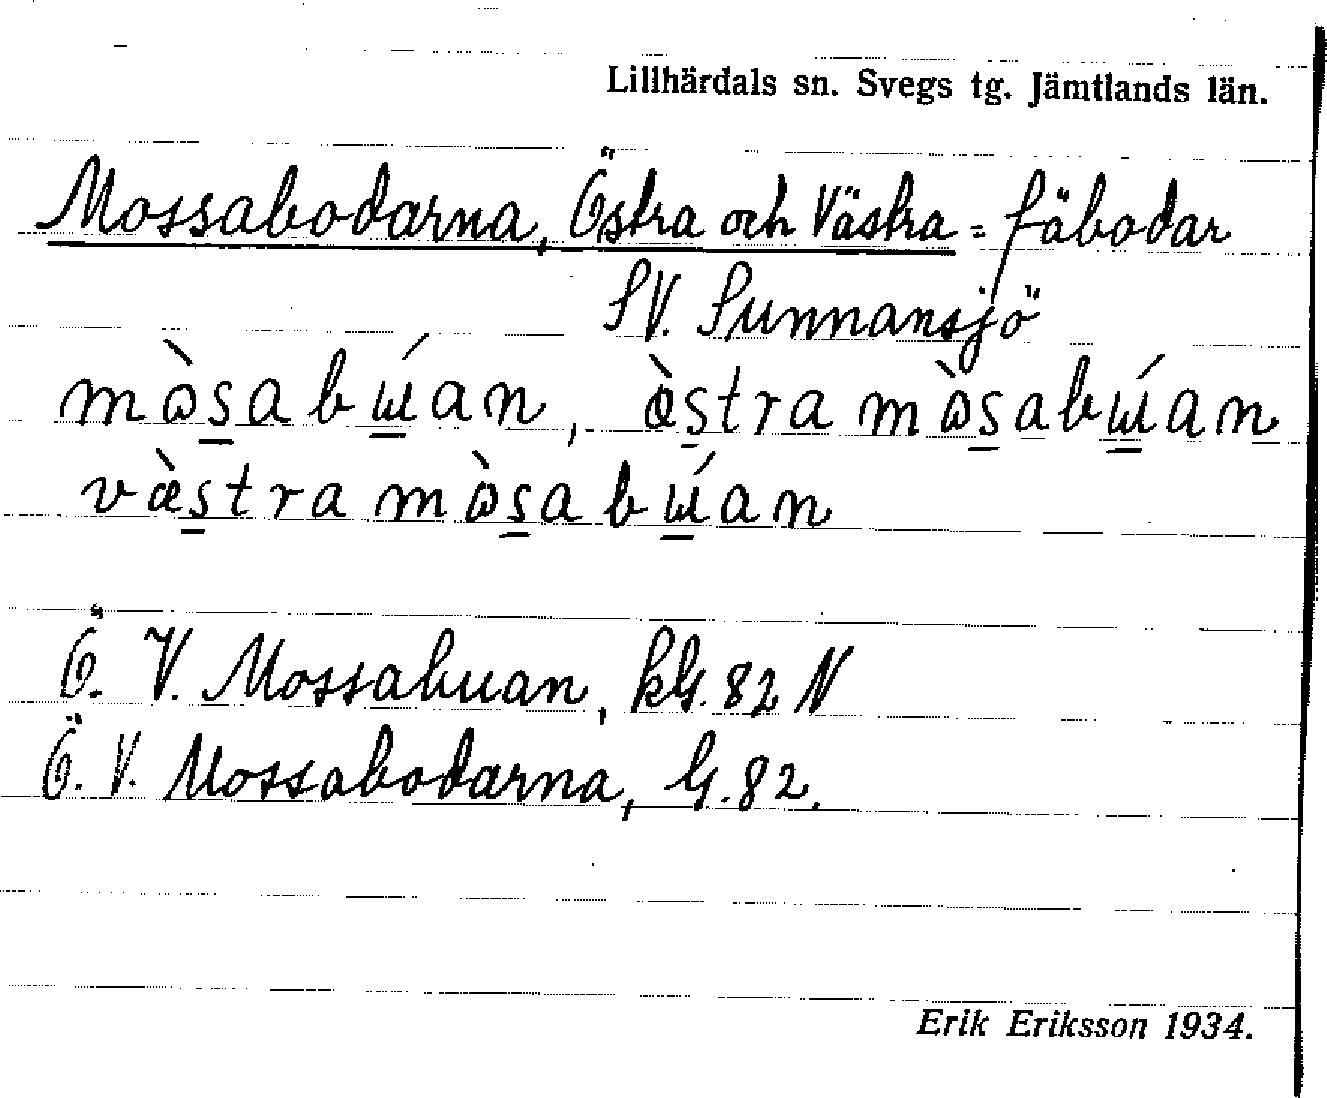 Lillhärdals sn. Svegs tg. Jämtlands län.
Mossabodarna, Östra och Västra = fäbodar
SV. Sunnansjö
mɷ̀s̲abɯ̲́an, æ̀s̲tra mɷ̀s̲abɯ̲́an
væ̀s̲tra mɷ̀s̲abɯ̲́an
Ö. V. Mossabuan, kG. 82 N
Ö. V. Mossabodarna, G. 82.
Erik Eriksson 1934.